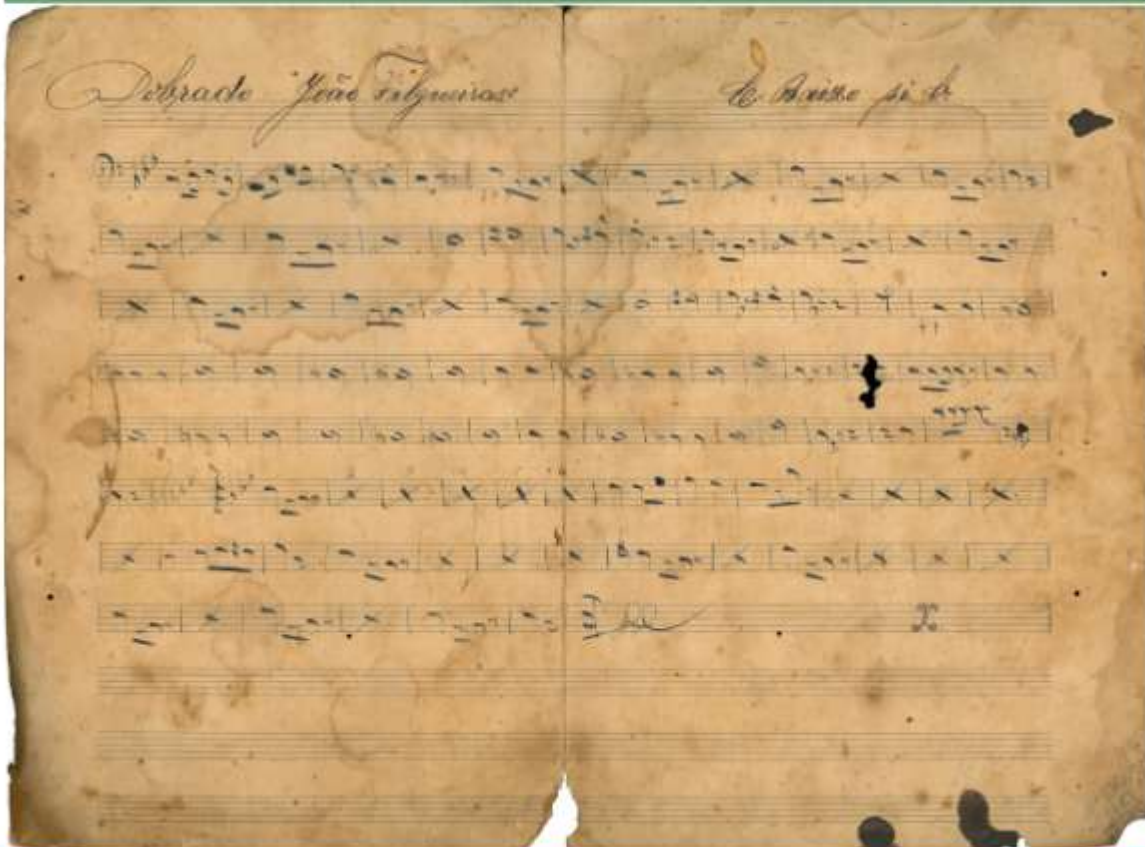 Dobrado "João Filgueiras" Baixo si b